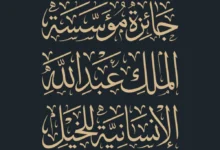 جائزة مؤسسة
الملك عبدالله
الإنسانية للخيل